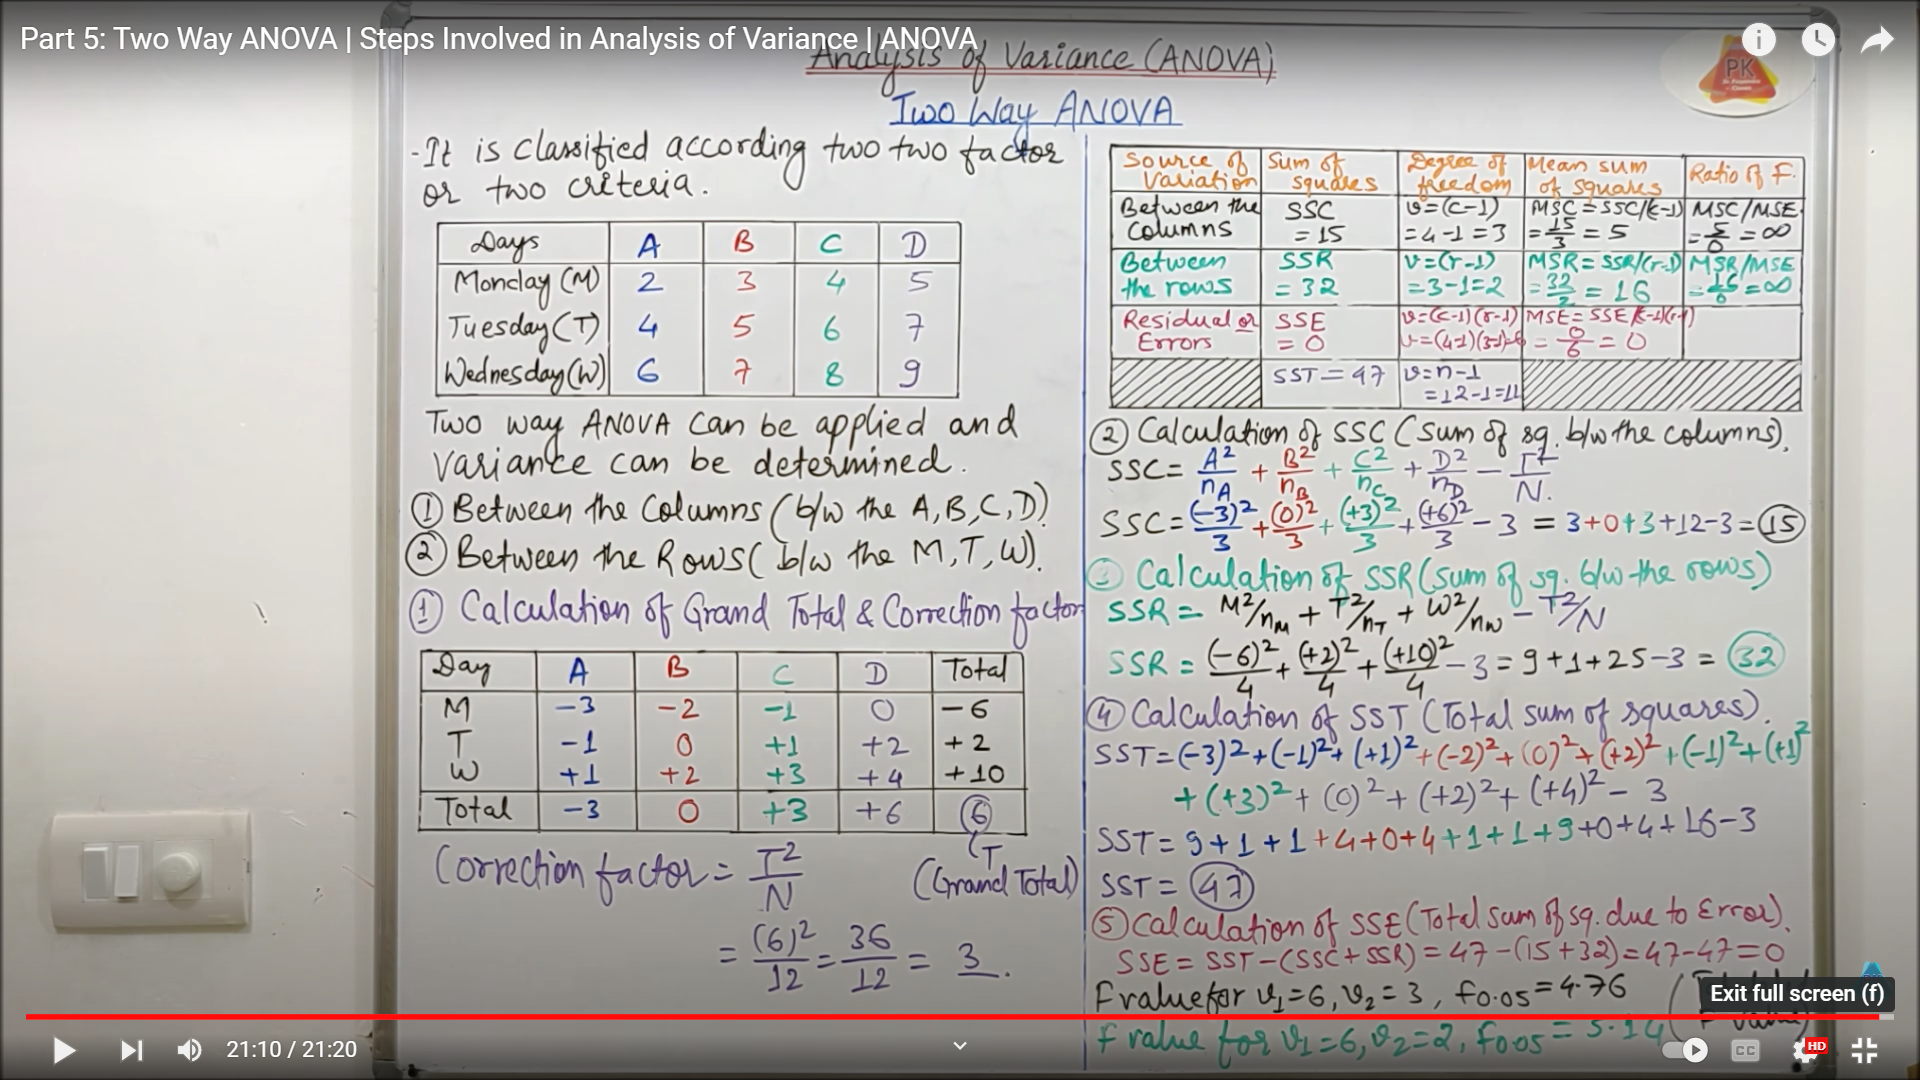 Part 5: Two Way ANOVA | Steps Involved in Analysis of Variance | ANOVA
Analysis of Variance (ANOVA)
PK
Two Way ANOVA
- It is classified according two two factor
or two criteria.
Days A B C D
Monday (M) 2 3 4 5
Tuesday (T) 4 5 6 7
Wednesday (W) 6 7 8 9
Two way ANOVA can be applied and
variance can be determined.
① Between the Columns (b/w the A, B, C, D)
② Between the Rows (b/w the M, T, W).
① Calculation of Grand Total & Correction factor
Day A B C D Total
M -3 -2 -1 0 -6
T -1 0 +1 +2 +2
W +1 +2 +3 +4 +10
Total -3 0 +3 +6 6
T
(Grand Total)
Correction factor = T²/N
= (6)²/12 = 36/12 = 3.
Source of Variation | Sum of squares | Degree of freedom | Mean sum of squares | Ratio of F.
Between the Columns | SSC = 15 | v=(c-1) = 4-1=3 | MSC = SSC/(c-1) = 15/3 = 5 | MSC/MSE = 5/0 = ∞
Between the rows | SSR = 32 | v=(r-1) = 3-1=2 | MSR = SSR/(r-1) = 32/2 = 16 | MSR/MSE = 16/0 = ∞
Residual or Errors | SSE = 0 | v=(c-1)(r-1) v=(4-1)(3-1)=6 | MSE = SSE/(c-1)(r-1) = 0/6 = 0
SST = 47 | v=n-1 = 12-1=11
② Calculation of SSC (Sum of sq. b/w the columns).
SSC = A²/nA + B²/nB + C²/nC + D²/nD - T²/N.
SSC = (-3)²/3 + (0)²/3 + (+3)²/3 + (+6)²/3 - 3 = 3+0+3+12-3 = 15
③ Calculation of SSR (Sum of sq. b/w the rows)
SSR = M²/nM + T²/nT + W²/nW - T²/N
SSR = (-6)²/4 + (+2)²/4 + (+10)²/4 - 3 = 9+1+25-3 = 32
④ Calculation of SST (Total sum of squares).
SST = (-3)²+(-1)²+(+1)²+(-2)²+(0)²+(+2)²+(-1)²+(+1)²
+(+3)²+(0)²+(+2)²+(+4)²-3
SST = 9+1+1+4+0+4+1+1+9+0+4+16-3
SST = 47
⑤ Calculation of SSE (Total sum of sq. due to Error).
SSE = SST-(SSC+SSR) = 47-(15+32) = 47-47 = 0
F value for v₁=6, v₂=3, f0.05 = 4.76
F value for v₁=6, v₂=2, f0.05 = 5.14
Exit full screen (f)
21:10 / 21:20
CC
HD